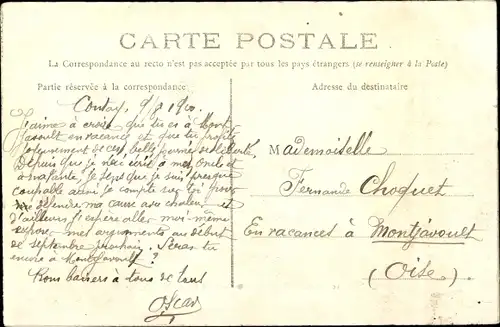 CARTE POSTALE
La Correspondance au recto n'est pas acceptée par tous les pays étrangers (se renseigner à la Poste)
Partie réservée à la correspondance
Adresse du destinataire
J'aime à croire que tu es à Mont
javoult en vacance et que tu profite
de ces belles journées de
Depuis que je n'ai écrit à mon oncle et
ma tante, je sens que je suis presque
coupable aussi je compte sur toi pour
défendre ma cause avec chaleur et
d'ailleurs j'espère aller moi-même
exposer mes arguments au début
de septembre prochain. Seras tu
encore à Montjavoult ?
Bons baisers à tous de tous
Oscar
Mademoiselle
Fernande Choquet
En vacances à Montjavoult
(Oise)